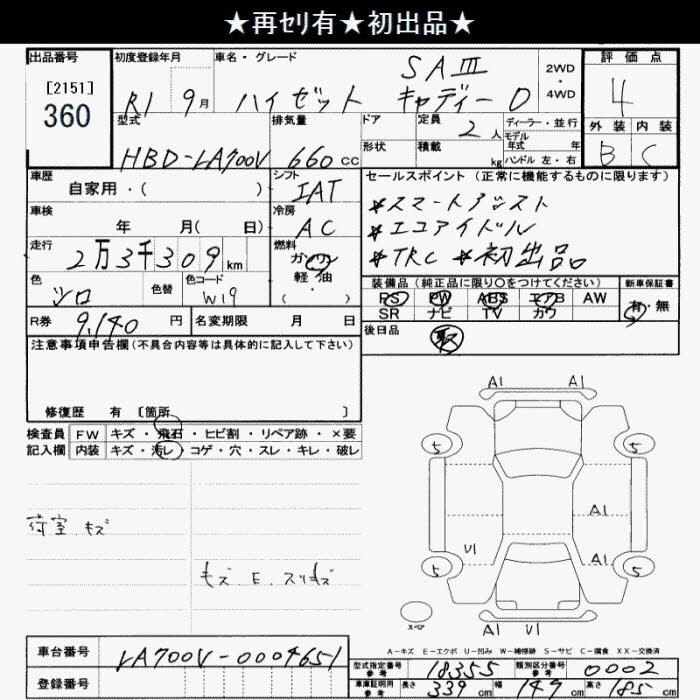 ★再セリ有★初出品★
出品番号
[2151]
360
初度登録年月
R1 9月
車名・グレード
SAⅢ
ハイゼット キャディー D
2WD
・
4WD
評価点
4
外装 内装
B C
型式
HBD-LA700V
排気量
660cc
ドア
定員
2人
ディーラー・並行
モデル
年式 年
形状
積載
kg
ハンドル 左・右
車歴
自家用・( )
シフト
IAT
車検
年 月( 日)
冷房
AC
走行
2万3千309km
燃料
ガソリン
軽・油
・( )
色
シロ
色替
色コード
W19
R券
9,140円
名変期限 月 日
セールスポイント (正常に機能するものに限ります)
*スマートアシスト
*エコアイドル
*TRC *初出品
装備品 (純正品に限り○をつけてください)
PS PW ABS エアB AW
SR ナビ TV カワ
新車保証書
有・無
後日品
取
注意事項申告欄(不具合内容等は具体的に記入して下さい)
修復歴 有 [箇所 ]
検査員 FW キズ・飛石・ヒビ割・リペア跡・×要
記入欄 内装 キズ・汚レ・コゲ・穴・スレ・キレ・破レ
荷室 キズ
キズ E. スリキズ
A1 A1
5 5
A1
U1 A1
5 5
スペア
A1 U1
A-キズ E-エクボ U-凹み W-補修跡 S-サビ C-腐食 XX-交換済
車台番号
LA700V-0004651
登録番号
型式指定番号
参考
18355
類別区分番号
参考
0002
車庫証明用
参考
長さ 339cm 幅 147cm 高さ 185cm